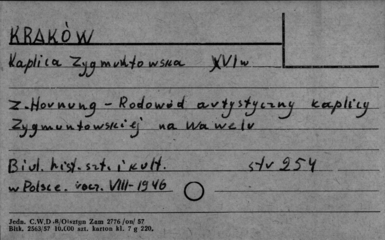 KRAKÓW
Kaplica Zygmuntowska XVI w
Z. Hornung - Rodowód artystyczny kaplicy
Zygmuntowskiej na Wawelu
Biul. hist. szt. i kult. str 254
w Polsce. rocz. VIII - 1946
Jedn. C.W.D. R/Olsztyn Zam 2776 /on/ 57
Bibk. 2563/57 10.000 szt. karton kl. 7 g 220.